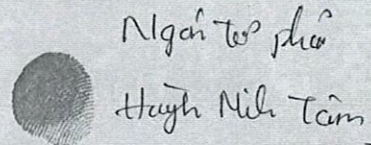 Ngón trỏ phải
Huỳnh Minh Tâm